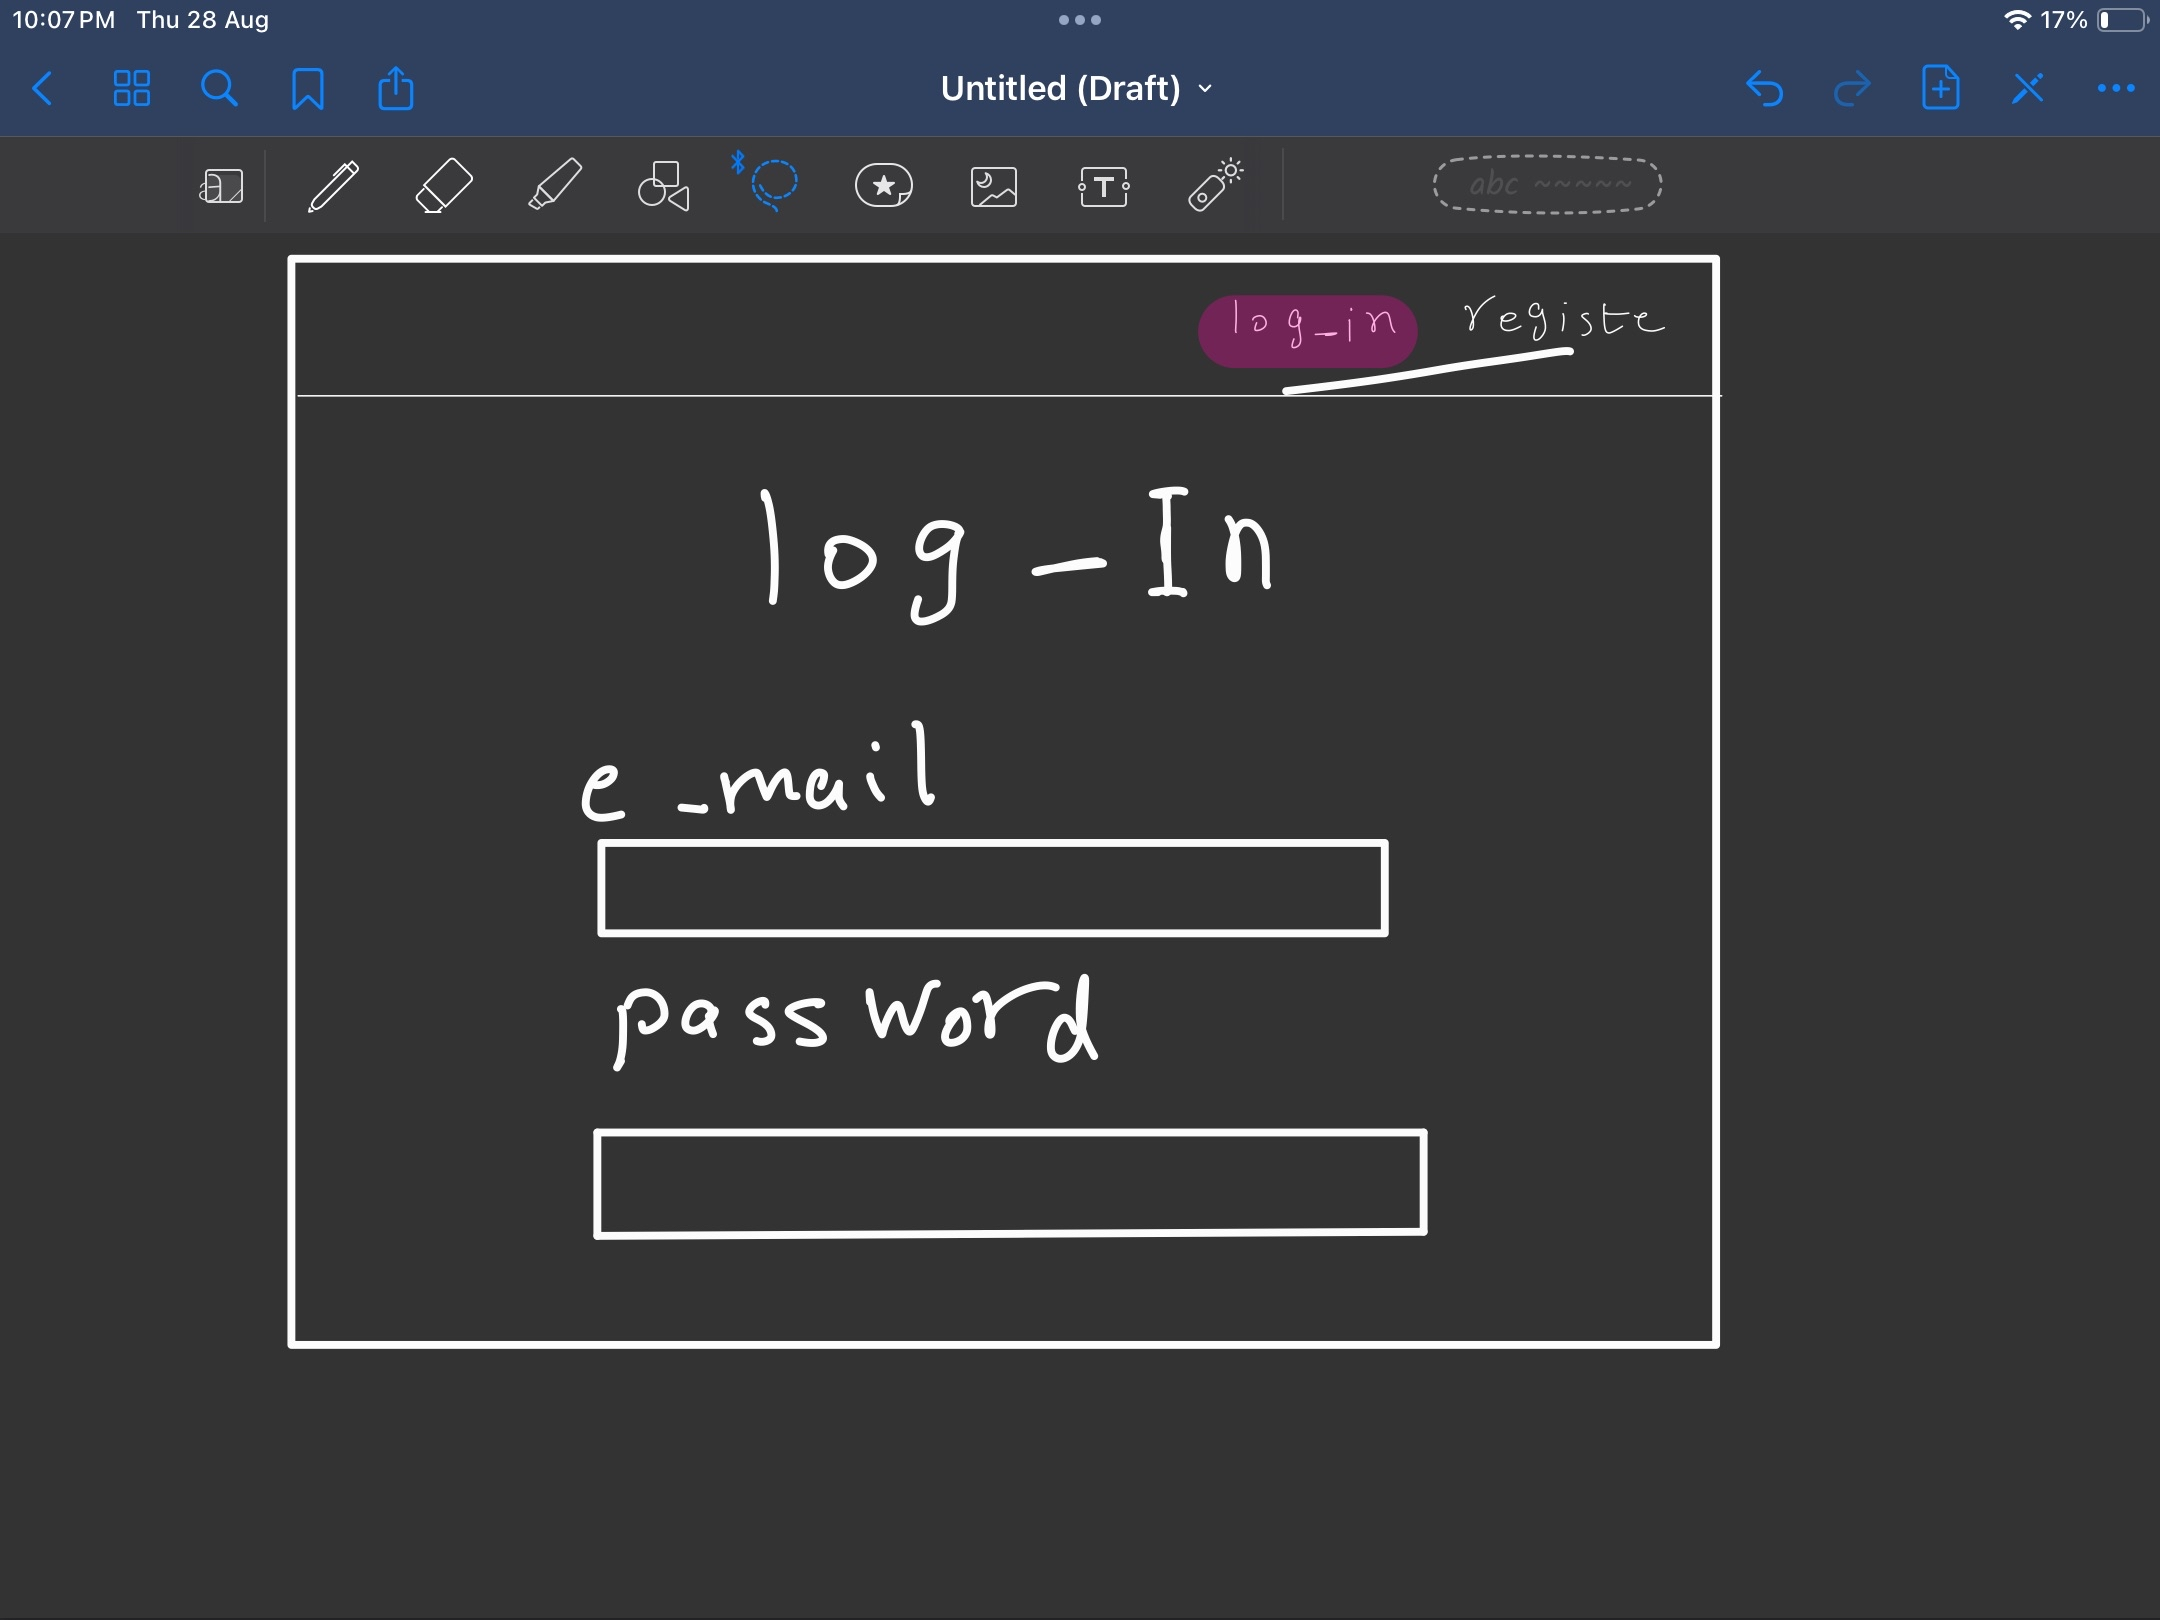 10:07 PM Thu 28 Aug 17%
Untitled (Draft)
abc
log_in registe
log-In
e_mail
password